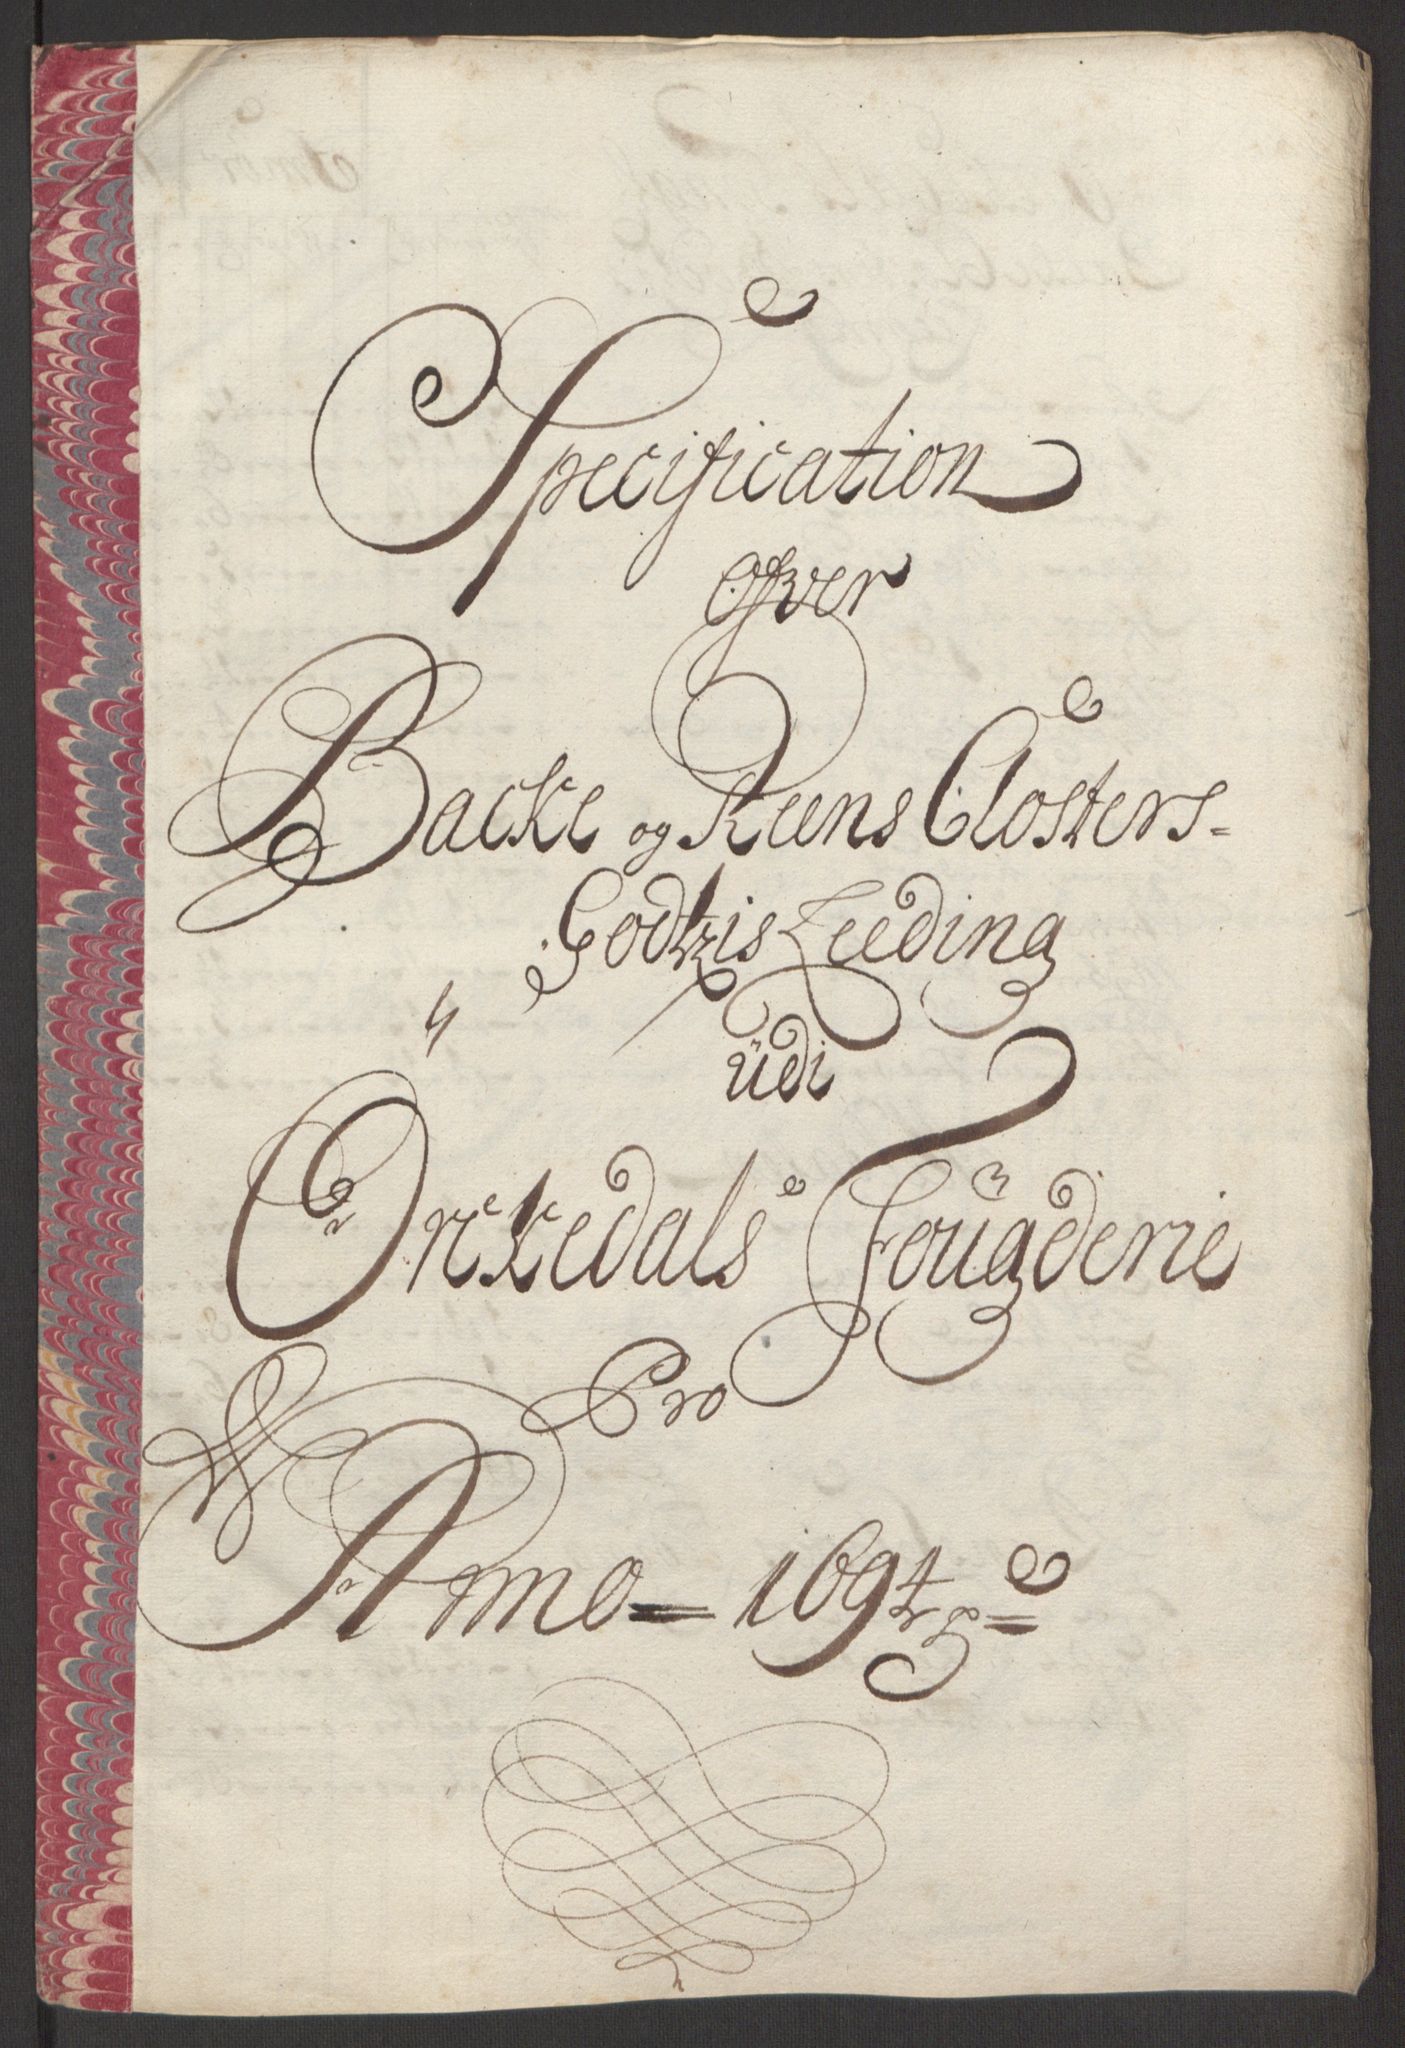 Specification
ofver
Backe og Reens Closters-
Godtzis Leeding
üdi
Orckedals Fougderie
Pro
Anno = 1694 =